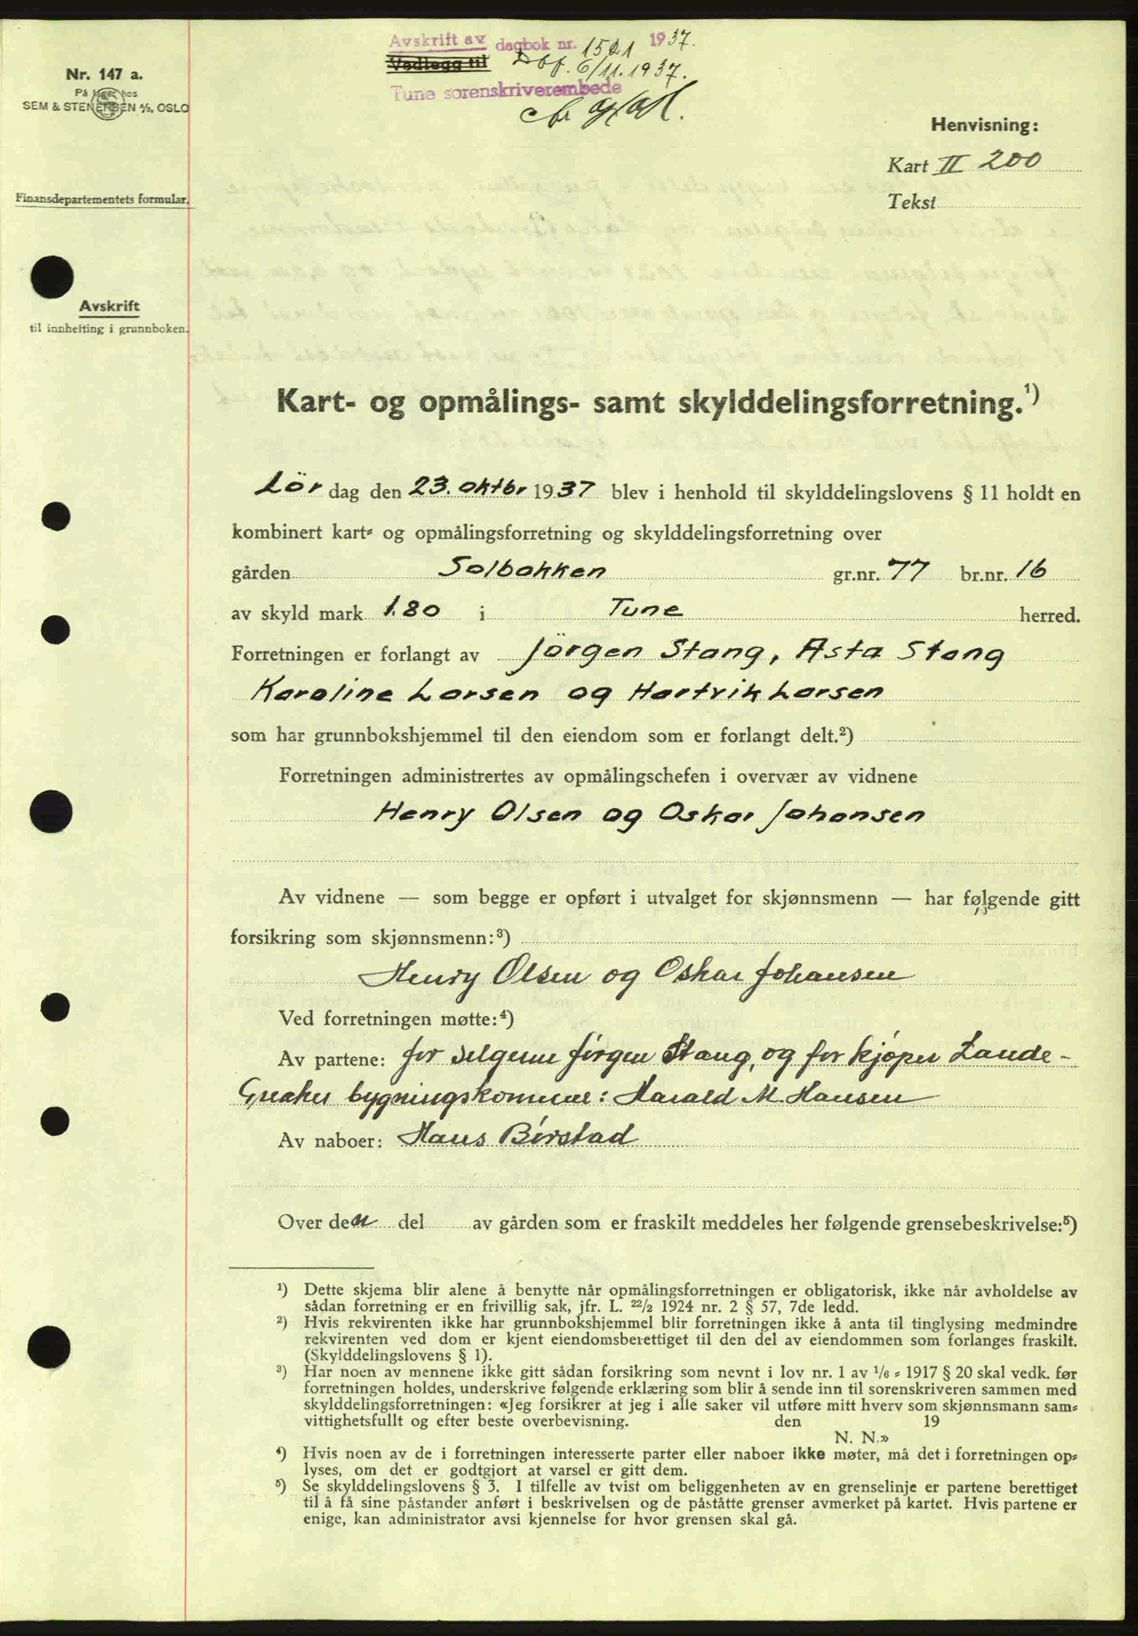 Avskrift av dagbok nr. 1521 1937.
Vedlegg til Dbf. 6/11. 1937.
Tune sorenskriverembede
Nr. 147 a.
På lager hos
SEM & STENERSEN A/S, OSLO
Henvisning:
Kart II 200
Tekst
Finansdepartementets formular.
Avskrift
til innhefting i grunnboken.
Kart- og opmålings- samt skylddelingsforretning.¹)
Lör dag den 23. oktbr 1937 blev i henhold til skylddelingslovens § 11 holdt en
kombinert kart- og opmålingsforretning og skylddelingsforretning over
gården Solbakken gr.nr. 77 br.nr. 16
av skyld mark 1.80 i Tune herred.
Forretningen er forlangt av Jörgen Stang, Asta Stang
Karoline Larsen og Hartvik Larsen
som har grunnbokshjemmel til den eiendom som er forlangt delt.²)
Forretningen administrertes av opmålingschefen i overvær av vidnene
Henry Olsen og Oskar Johansen
Av vidnene — som begge er opført i utvalget for skjønnsmenn — har følgende gitt
forsikring som skjønnsmenn:³)
Henry Olsen og Oskar Johansen
Ved forretningen møtte:⁴)
Av partene: for selgerne Jørgen Stang, og for kjøper Lande-
Greaker bygningskommune: Harald M. Hansen
Av naboer: Hans Börstad
Over den del av gården som er fraskilt meddeles her følgende grensebeskrivelse:⁵)
¹) Dette skjema blir alene å benytte når opmålingsforretningen er obligatorisk, ikke når avholdelse av
sådan forretning er en frivillig sak, jfr. L. 22/2 1924 nr. 2 § 57, 7de ledd.
²) Hvis rekvirenten ikke har grunnbokshjemmel blir forretningen ikke å anta til tinglysing medmindre
rekvirenten ved dom er kjent eiendomsberettiget til den del av eiendommen som forlanges fraskilt.
(Skylddelingslovens § 1).
³) Har noen av mennene ikke gitt sådan forsikring som nevnt i lov nr. 1 av 1/6 - 1917 § 20 skal vedk. før
forretningen holdes, underskrive følgende erklæring som blir å sende inn til sorenskriveren sammen med
skylddelingsforretningen: «Jeg forsikrer at jeg i alle saker vil utføre mitt hverv som skjønnsmann sam-
vittighetsfullt og efter beste overbevisning. den 19
N. N.»
⁴) Hvis noen av de i forretningen interesserte parter eller naboer ikke møter, må det i forretningen op-
lyses, om det er godtgjort at varsel er gitt dem.
⁵) Se skylddelingslovens § 3. I tilfelle av tvist om beliggenheten av en grenselinje er partene berettiget
til å få sine påstander anført i beskrivelsen og de påståtte grenser avmerket på kartet. Hvis partene er
enige, kan administrator avsi kjennelse for hvor grensen skal gå.